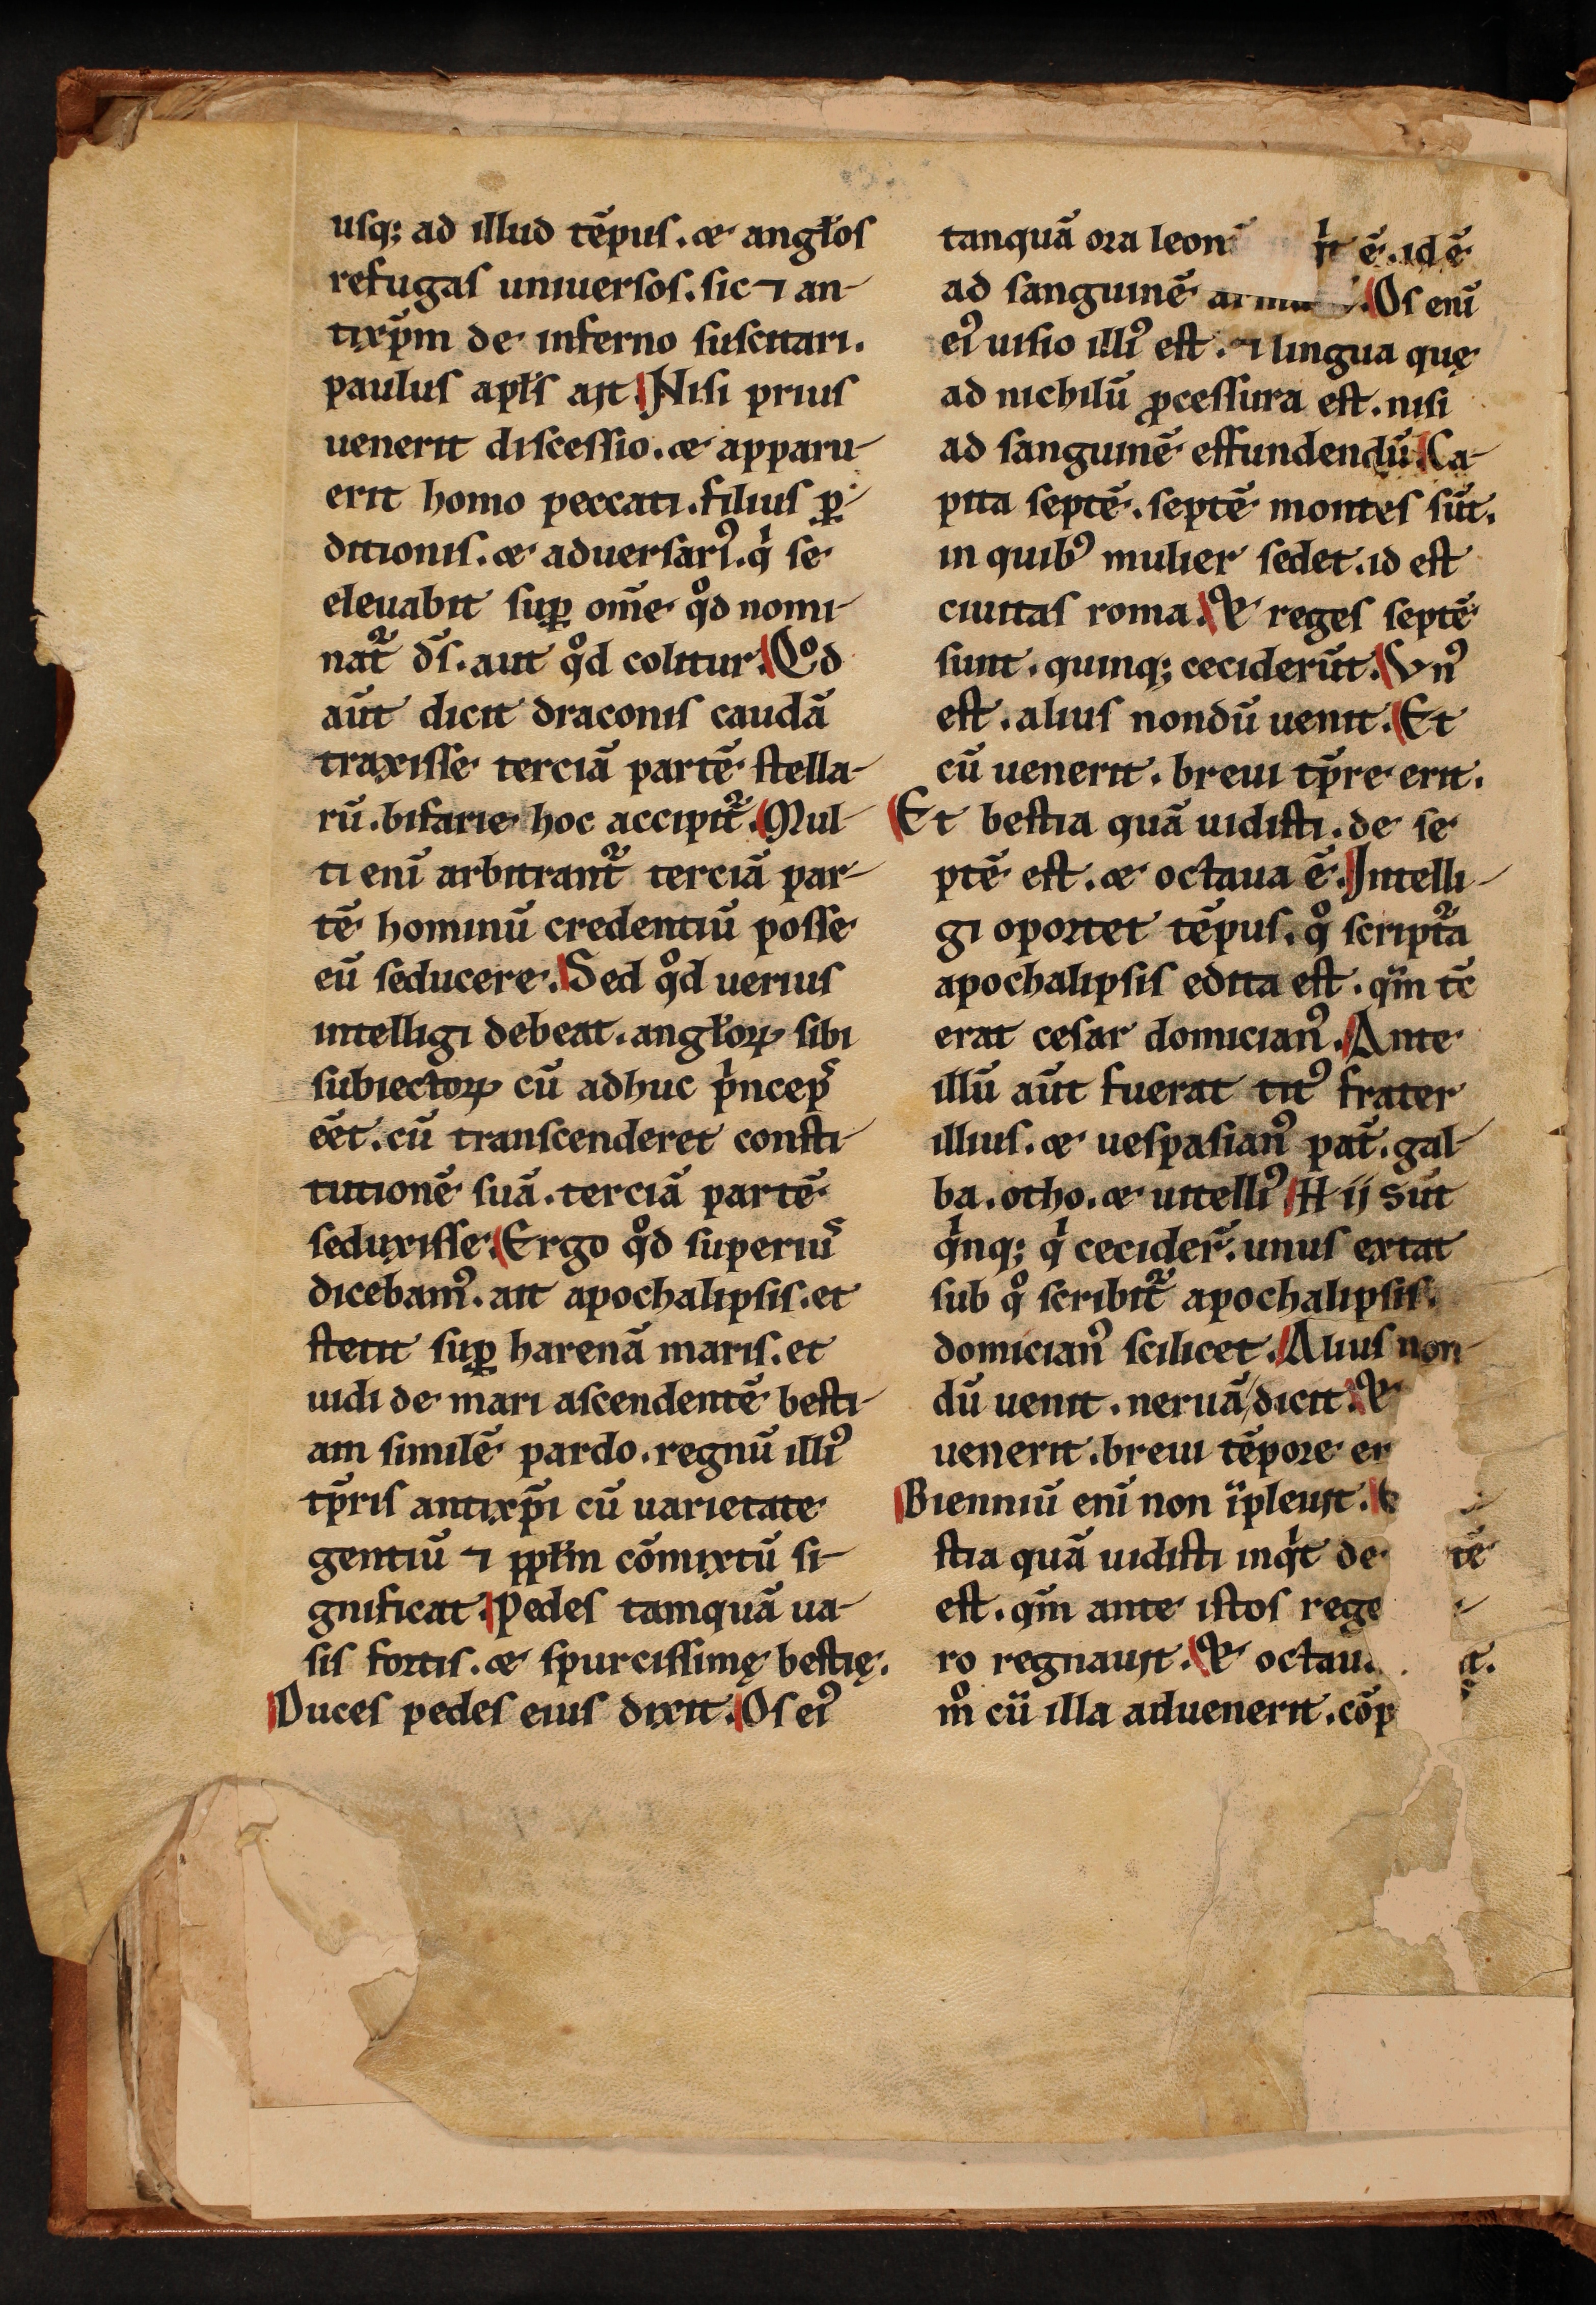 usq; ad illud tēpus. & angl̄os
refugas uniuersos. sic ⁊ an-
tixp̄m de inferno suscitari.
paulus apl̄s ait. Nisi prius
uenerit discessio. & apparu-
erit homo peccati. filius ꝑ-
ditionis. & aduersariꝰ. qͥ se
eleuabit suꝑ om̄e qͦd nomi-
nat᷑ ds̄. aut qͦd colitur. Qͦd
aūt dicit draconis caudā
traxisse terciā partē stella-
rū. bifarie hoc accipit᷑. Mul-
ti enī arbitrant᷑ terciā par-
tē hominū credentiū posse
eū seducere. Sed qͦd uerius
intelligi debeat. angl̄oꝝ sibi
subiectoꝝ cū adhuc pͥnceps
ēēt. cū transcenderet consti-
tutionē suā. terciā partē
seduxisse. Ergo qͦd superius
dicebamꝰ. ait apochalipsis. et
stetit suꝑ harenā maris. et
uidi de mari ascendentē besti-
am similē pardo. regnū illiꝰ
tp̄ris antixp̄i cū uarietate
gentiū ⁊ ppl̄m cōmixtū si-
gnificat. Pedes tamquā ua-
sis fortis. & spurcissimę bestię.
Duces pedes eius dixit. Os eiꝰ
tanquā ora leon ē. id ē
ad sanguinē Os enī
eiꝰ uisio illiꝰ est. ⁊ lingua quę
ad nichilū ꝓcessura est. nisi
ad sanguinē effundendū. Ca-
pita septē. septē montes sūt.
in quibꝰ mulier sedet. id est
ciuitas roma. & reges septē
sunt. quinq; ceciderūt. Vnꝰ
est. alius nondū uenit. Et
cū uenerit. breui tp̄re erit.
Et bestia quā uidisti. de se
ptē est. & octaua ē. Intelli-
gi oportet tēpus. qͦ script᷑a
apochalipsis edita est. qm̄ tc̄
erat cesar domicianꝰ. Ante
illū aūt fuerat titꝰ frater
illius. & uespasianꝰ pat̄. gal-
ba. otho. & uitelliꝰ. Hij sūt
qͥnq; qͥ cecider̄. unus extat
sub qͦ scribit᷑ apochalipsis.
domicianꝰ scilicet. Alius non-
dū uenit. neruā dicit. &
uenerit. breui tēpore er
Bienniū enī non īpleuit.
stia quā uidisti inqͥt de tē
est. qm̄ ante istos rege
ro regnauit. & octau
mͦ cū illa aduenerit. cōp